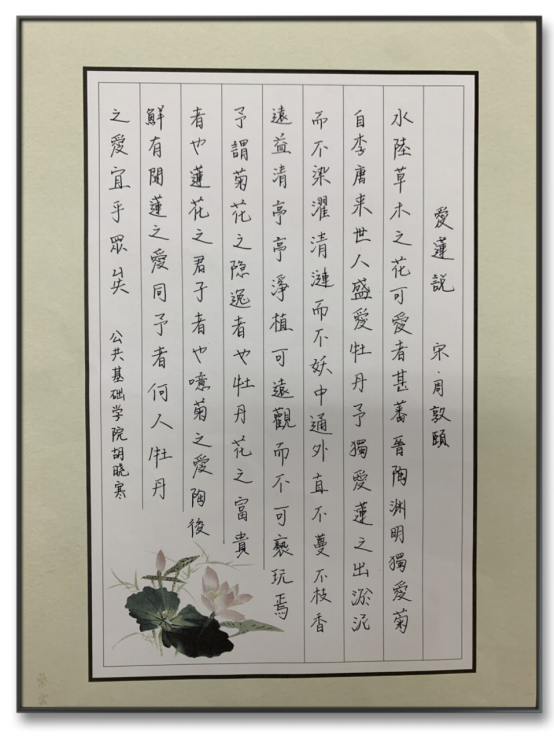 愛蓮説 宋·周敦頤
水陸草木之花可愛者甚蕃晉陶渊明獨愛菊
自李唐来世人盛愛牡丹予獨愛蓮之出淤泥
而不染濯清漣而不妖中通外直不蔓不枝香
遠益清亭亭淨植可遠觀而不可褻玩焉
予謂菊花之隐逸者也牡丹花之富貴
者也蓮花之君子者也噫菊之愛陶後
鮮有聞蓮之愛同予者何人牡丹
之愛宜乎眾矣 公共基础学院胡晓寒